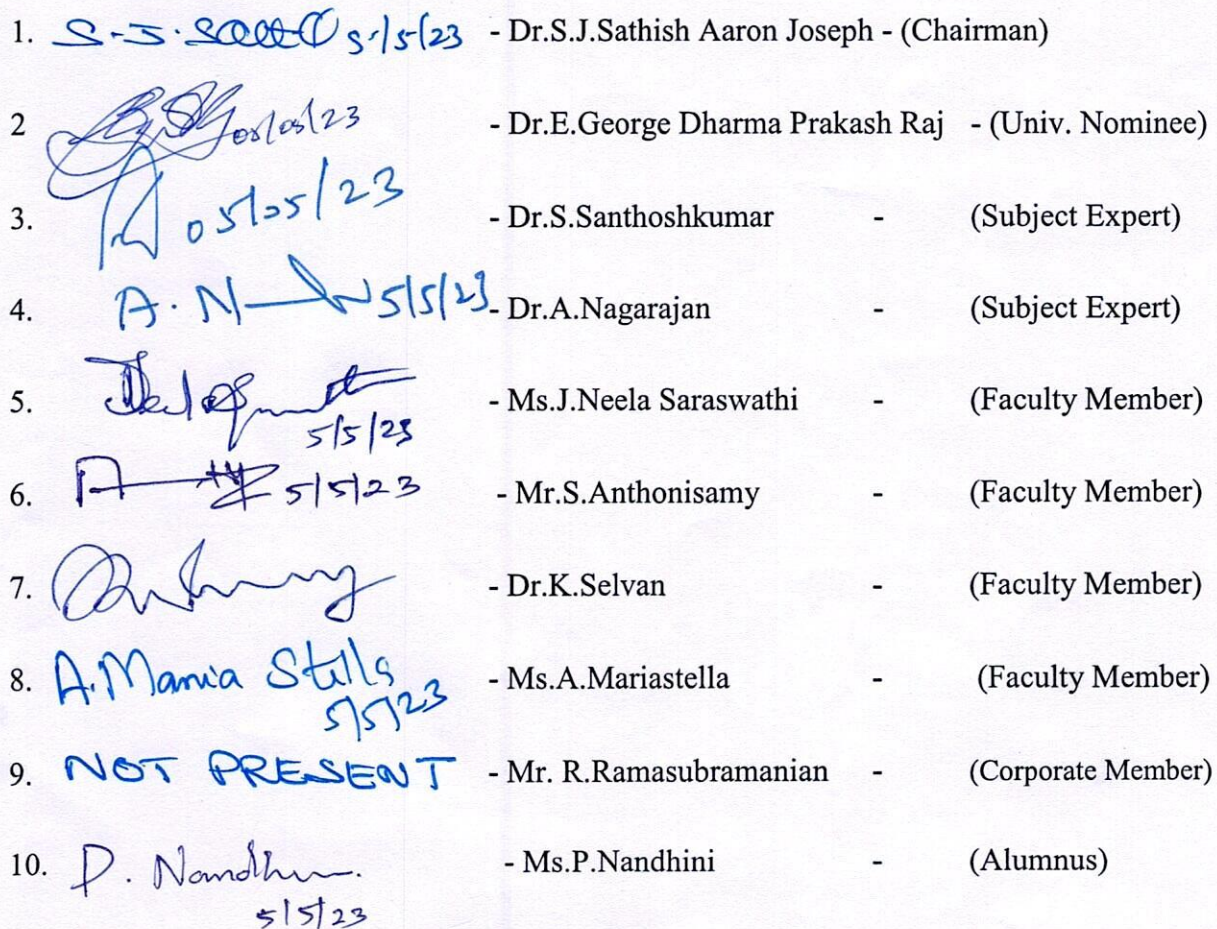 1. S.J. 5/5/23 - Dr.S.J.Sathish Aaron Joseph - (Chairman)
2 05/05/23 - Dr.E.George Dharma Prakash Raj - (Univ. Nominee)
3. 05/05/23 - Dr.S.Santhoshkumar - (Subject Expert)
4. A. N 5/5/23 - Dr.A.Nagarajan - (Subject Expert)
5. - Ms.J.Neela Saraswathi - (Faculty Member)
5/5/23
6. 5/5/23 - Mr.S.Anthonisamy - (Faculty Member)
7. - Dr.K.Selvan - (Faculty Member)
8. A. Maria Stella - Ms.A.Mariastella - (Faculty Member)
5/5/23
9. NOT PRESENT - Mr. R.Ramasubramanian - (Corporate Member)
10. P. Nandhini - Ms.P.Nandhini - (Alumnus)
5/5/23